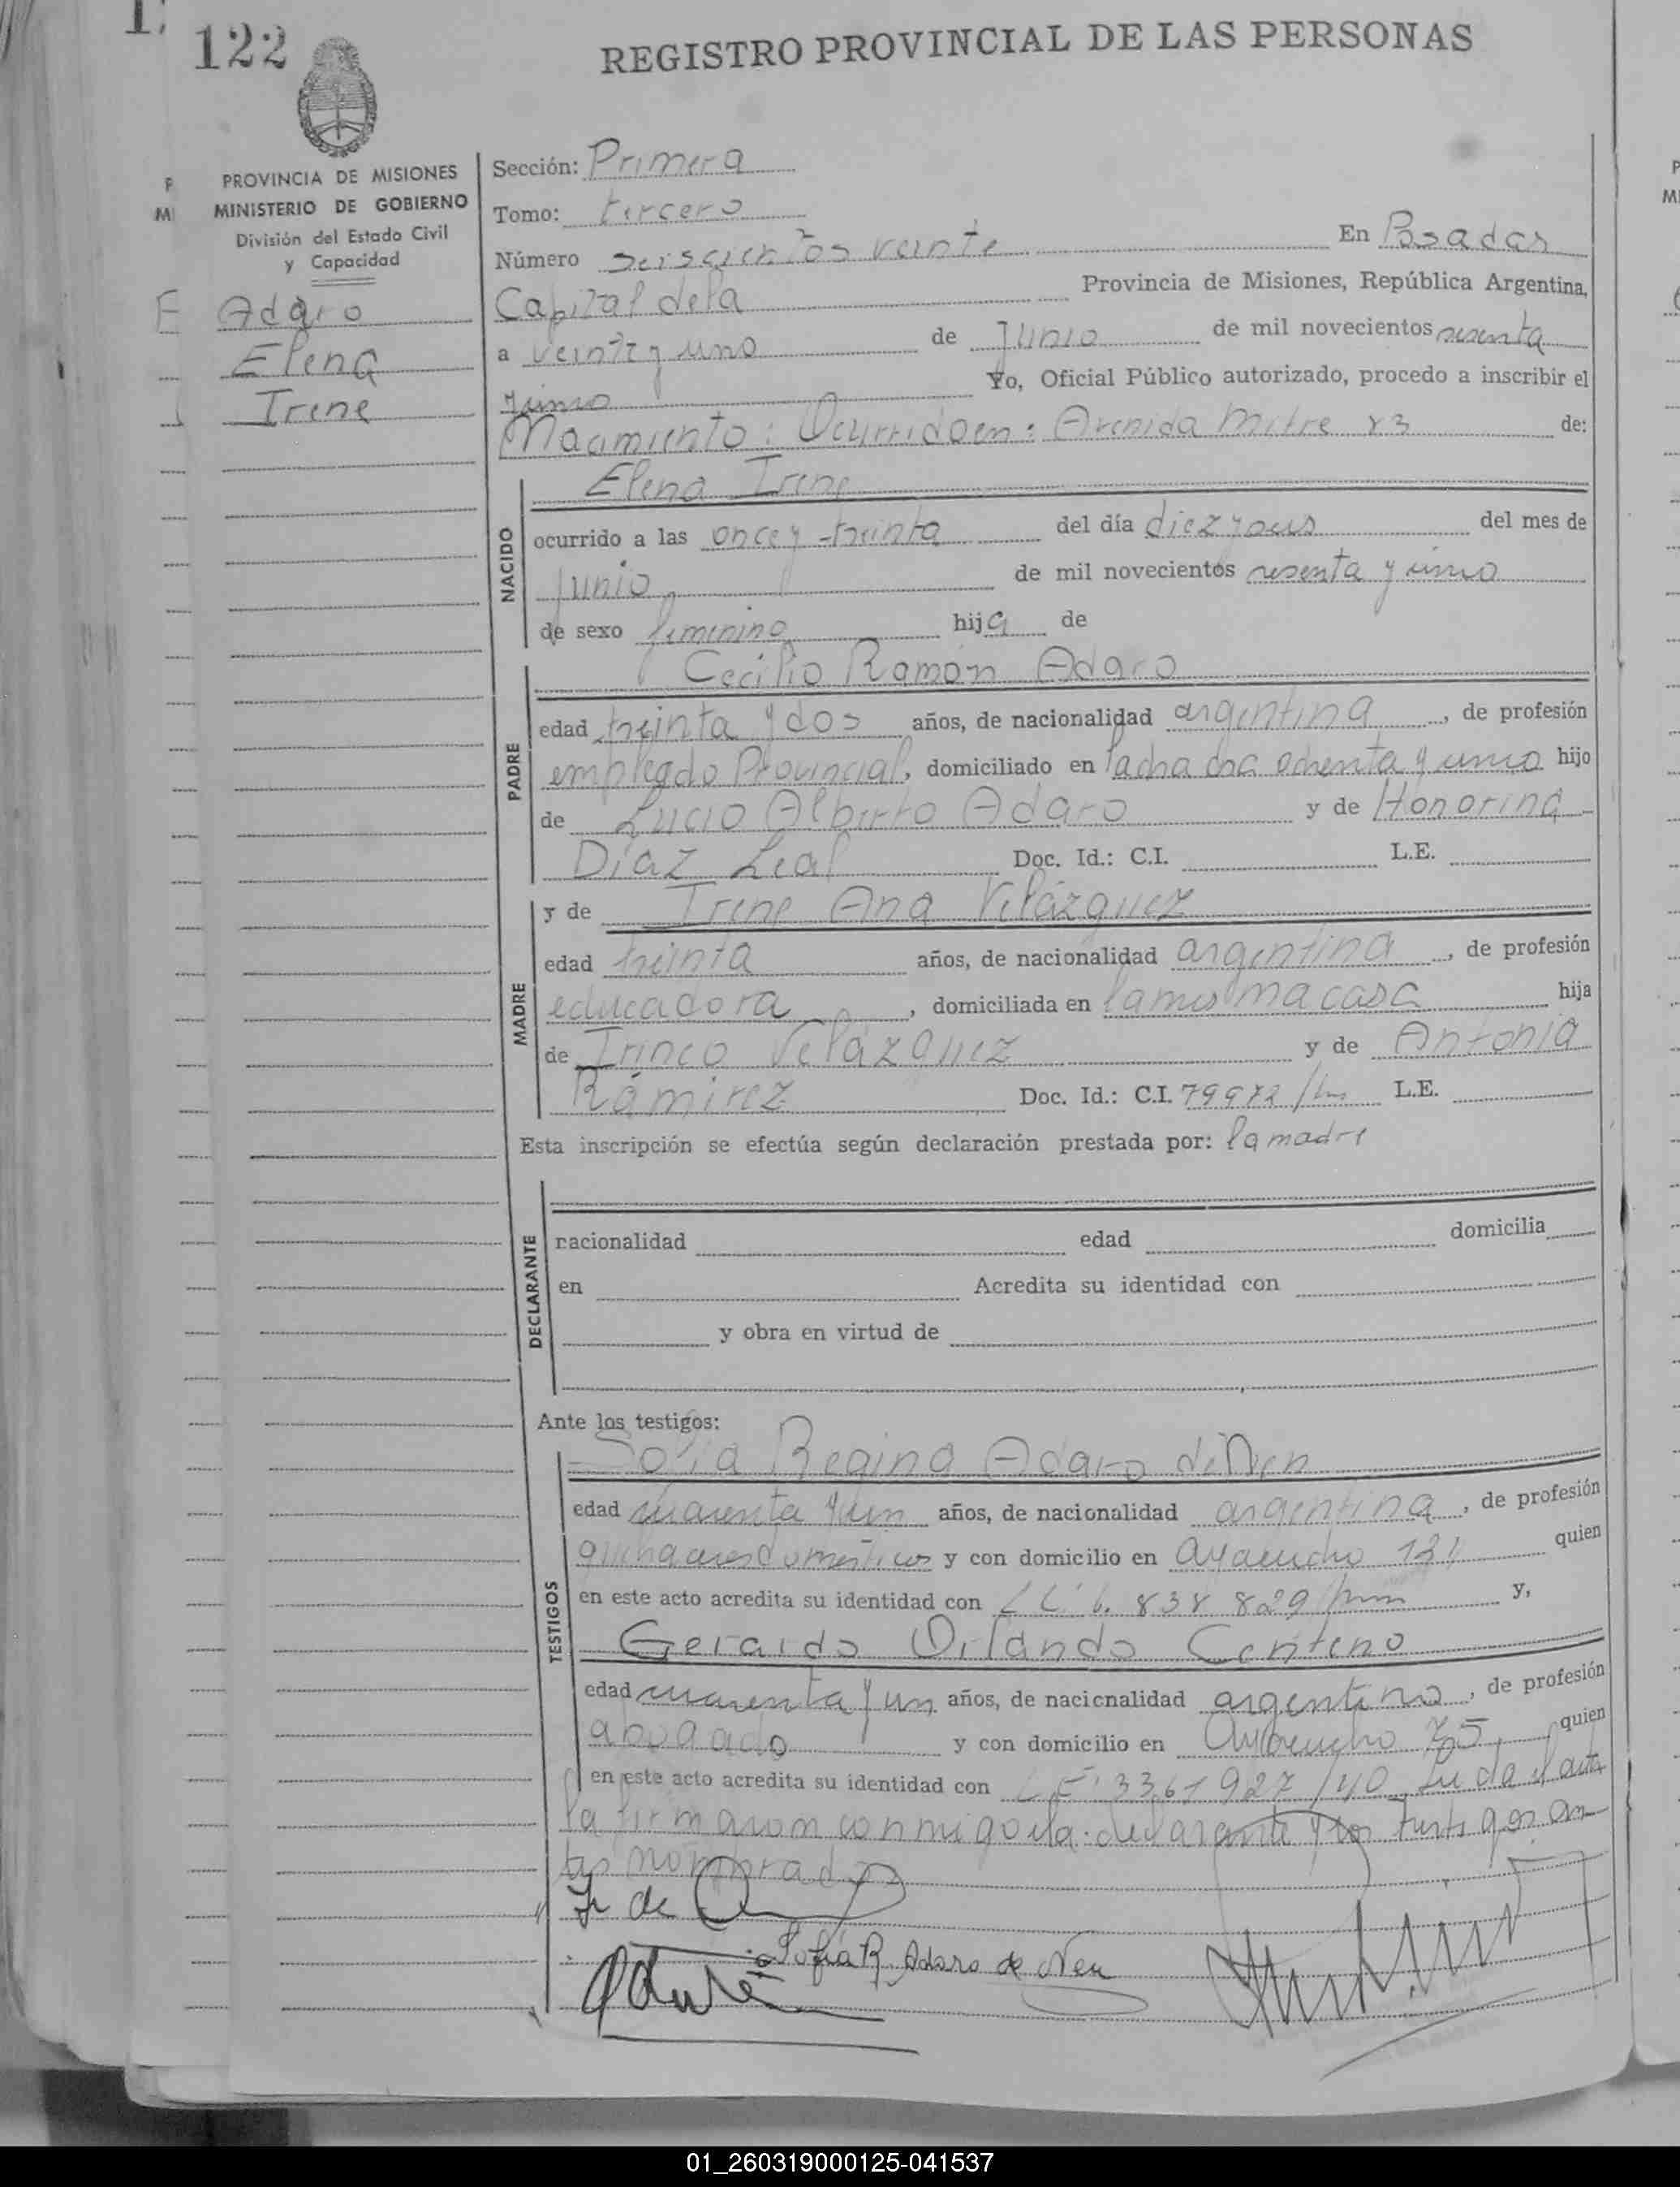 122
REGISTRO PROVINCIAL DE LAS PERSONAS
PROVINCIA DE MISIONES
MINISTERIO DE GOBIERNO
División del Estado Civil
y Capacidad
Adaro
Elena
Irene
Sección: Primera
Tomo: tercero
Número seiscientos veinte En Posadas
Capital de la Provincia de Misiones, República Argentina,
a veinte y uno de Junio de mil novecientos sesenta
y uno Yo, Oficial Público autorizado, procedo a inscribir el
Nacimiento: Ocurrido en: Avenida Mitre 23 de:
NACIDO
Elena Irene
ocurrido a las once y treinta del día diez y seis del mes de
Junio de mil novecientos sesenta y uno
de sexo femenino hija de
PADRE
Cecilio Ramón Adaro
edad treinta y dos años, de nacionalidad argentina, de profesión
empleado Provincial, domiciliado en la chacra ochenta y uno hijo
de Lucio Alberto Adaro y de Honorina
Díaz Leal Doc. Id.: C.I. L.E.
MADRE
y de Irene Ana Velázquez
edad treinta años, de nacionalidad argentina, de profesión
educadora, domiciliada en la misma casa hija
de Irineo Velázquez y de Antonia
Rámirez Doc. Id.: C.I. 79972 L.E.
Esta inscripción se efectúa según declaración prestada por: la madre
DECLARANTE
nacionalidad edad domicilia
en Acredita su identidad con
y obra en virtud de
Ante los testigos:
TESTIGOS
Sofia Regina Adaro de Nen
edad cuarenta y un años, de nacionalidad argentina, de profesión
quehaceres domésticos y con domicilio en ayacucho 131 quien
en este acto acredita su identidad con L C 6.838 829 y,
Gerardo Orlando Centeno
edad cuarenta y un años, de nacionalidad argentino, de profesión
abogado y con domicilio en Ayacucho 75 quien
en este acto acredita su identidad con L E 3361927/40 Leida el acta
la firmaron conmigo la declarante y los testigos an
tes nombrados
Sofía R. Adaro de Nen
01_260319000125-041537